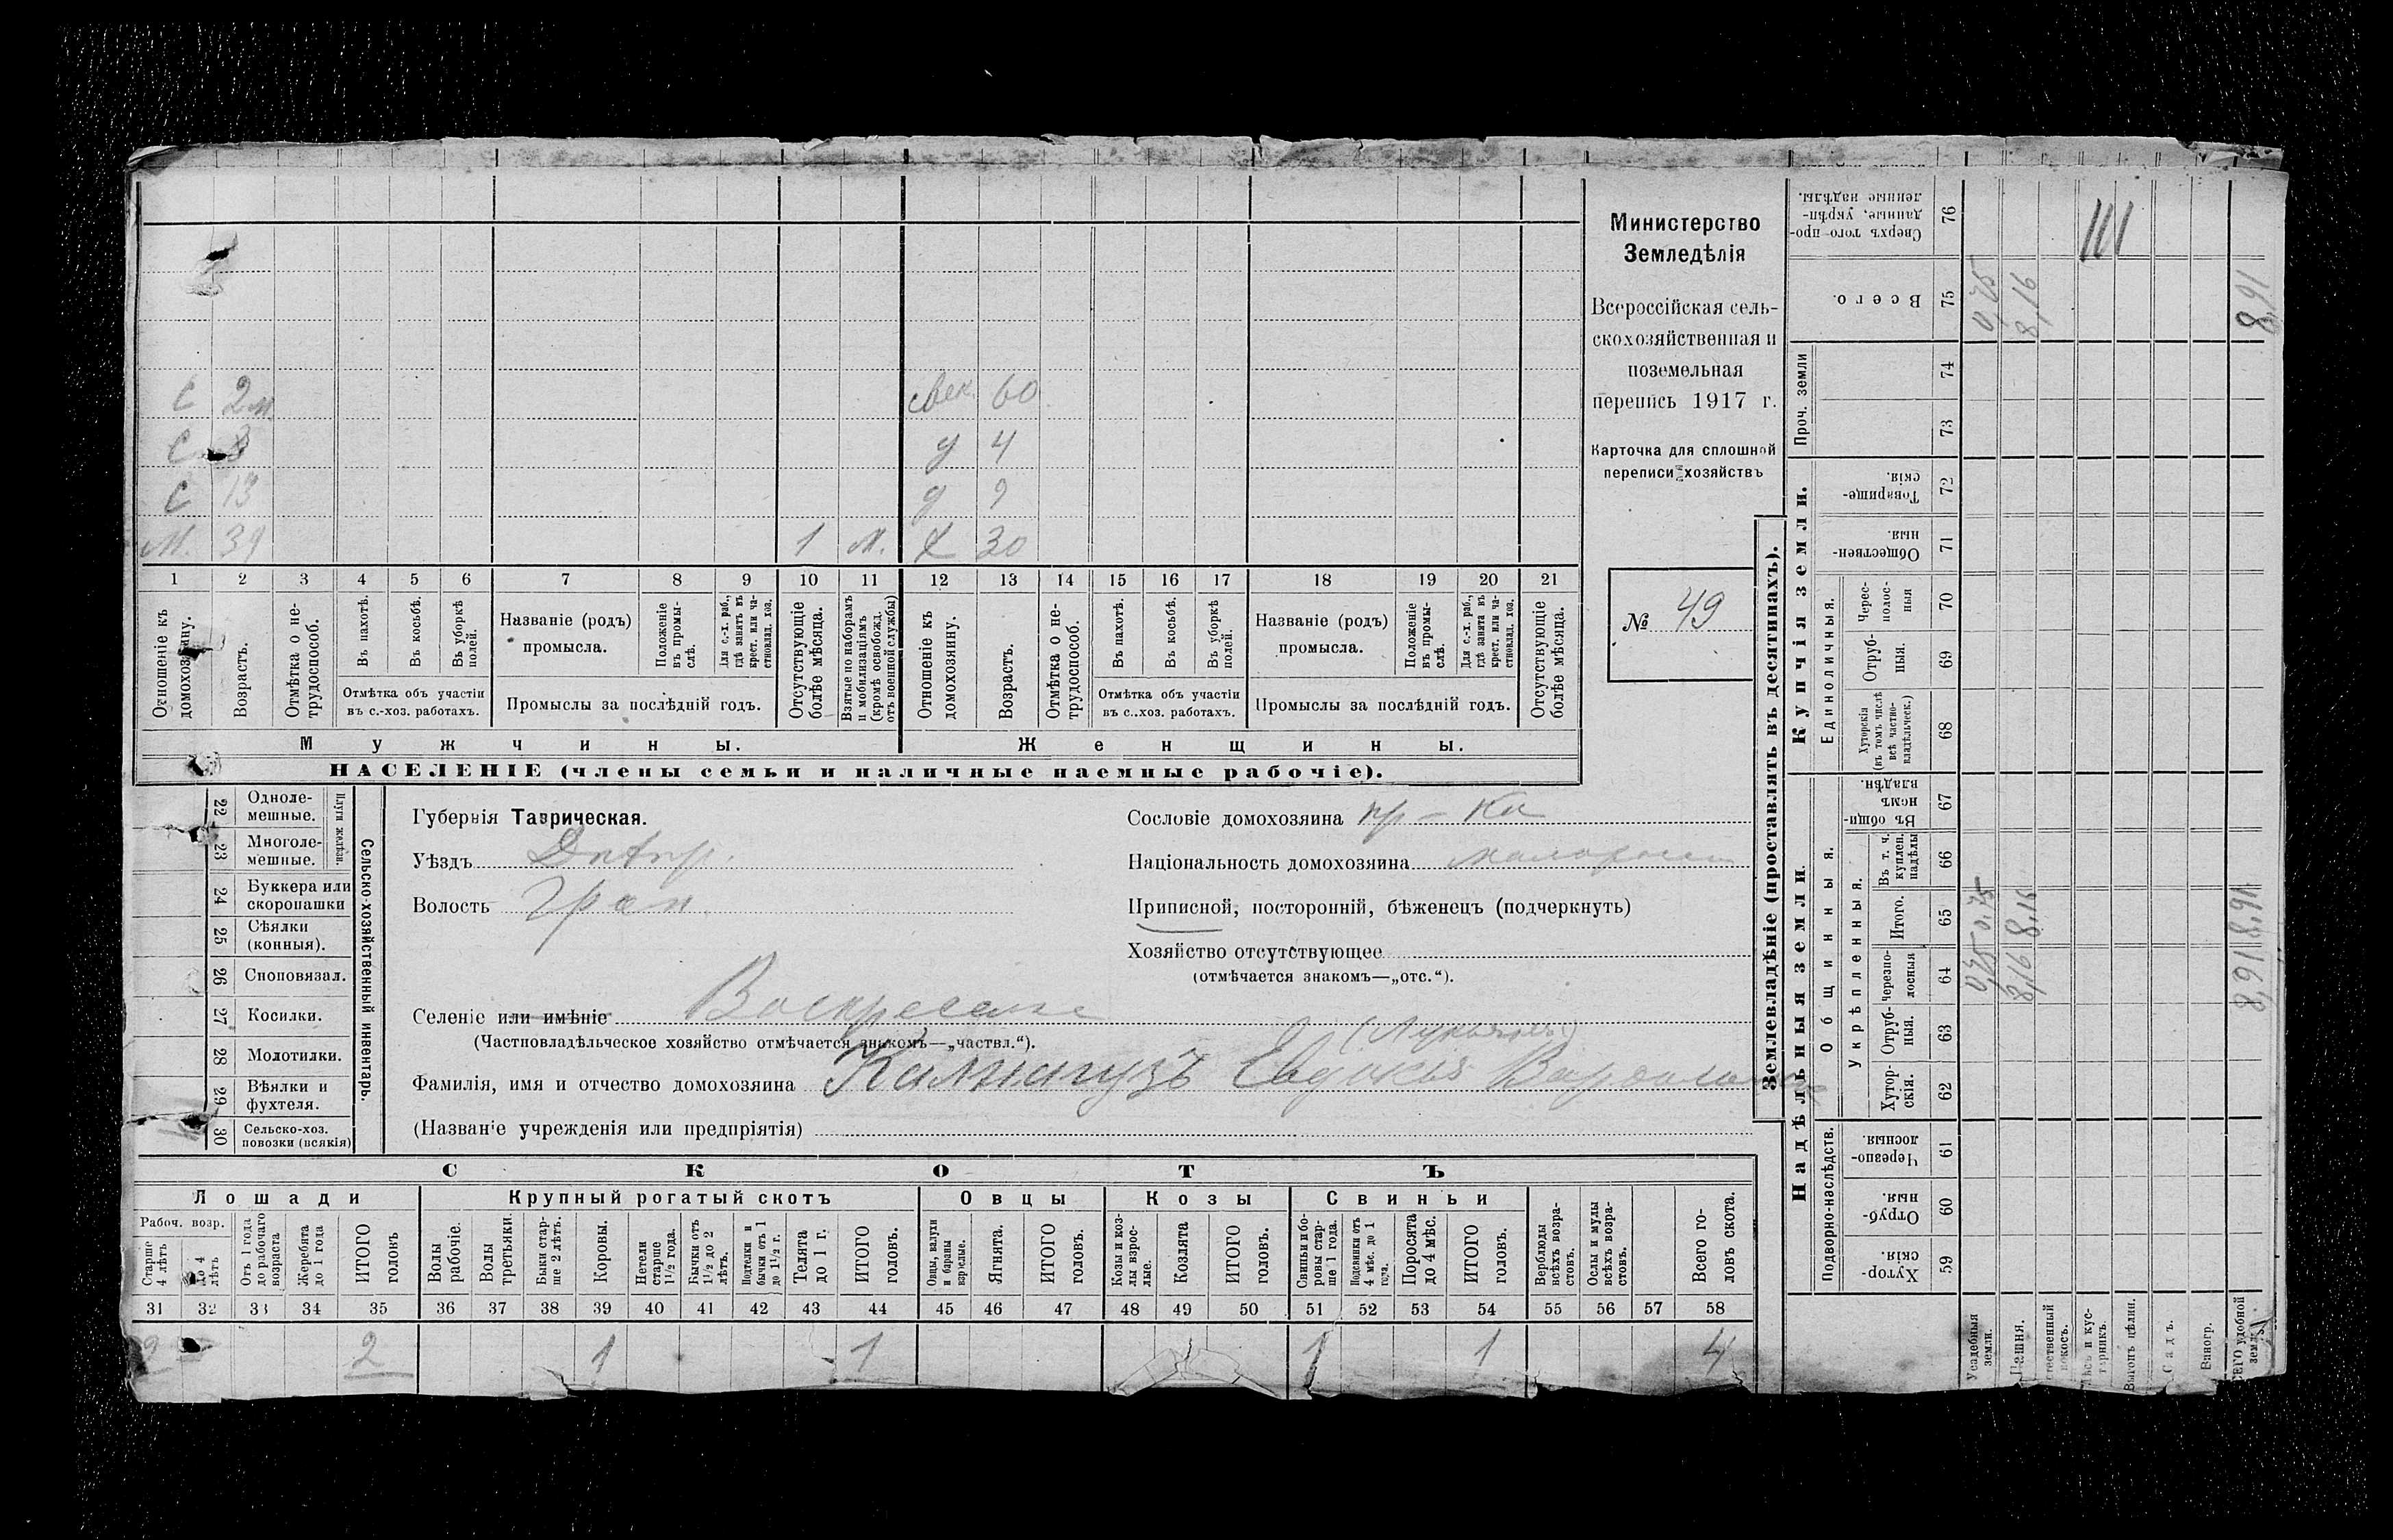 Министерство
Земледѣлія
Всероссійская сель-
скохозяйственная и
поземельная
перепись 1917 г.
Карточка для сплошной
переписи хозяйствъ
№ 49
С 2 м. свек. 60
С 3 д 4
С 13 д 9
М. 39 1 м. Х 30
1 2 3 4 5 6 7 8 9 10 11 12 13 14 15 16 17 18 19 20 21
Отношеніе къ домохозяину.
Возрастъ.
Отмѣтка о не-трудоспособ.
Въ пахотѣ.
Въ косьбѣ.
Въ уборкѣ полей.
Отмѣтка объ участіи
въ с.-хоз. работахъ.
Названіе (родъ)
промысла.
Положеніе въ промы-слѣ.
Для с.-х. раб., гдѣ занятъ въ крест. или ча-стновлад. хоз.
Промыслы за послѣдній годъ.
Отсутствующіе болѣе мѣсяца.
Взятые по наборамъ и мобилизаціямъ (кромѣ освобожд. отъ военной службы)
Отношеніе къ домохозяину.
Возрастъ.
Отмѣтка о не-трудоспособ.
Въ пахотѣ.
Въ косьбѣ.
Въ уборкѣ полей.
Отмѣтка объ участіи
въ с.-хоз. работахъ.
Названіе (родъ)
промысла.
Положеніе въ промы-слѣ.
Для с.-х. раб., гдѣ занята въ крест. или ча-стновлад. хоз.
Промыслы за послѣдній годъ.
Отсутствующіе болѣе мѣсяца.
Мужчины. Женщины.
НАСЕЛЕНІЕ (члены семьи и наличные наемные рабочіе).
22 Одноле-мешные.
23 Многоле-мешные.
Плуги желѣзн.
24 Буккера или скоропашки
25 Сѣялки (конныя).
26 Сноповязал.
27 Косилки.
28 Молотилки.
29 Вѣялки и фухтеля.
30 Сельско-хоз. повозки (всякія)
Сельско-хозяйственный инвентарь.
Губернія Таврическая.
Уѣздъ Днѣпр.
Волость
Селеніе или имѣніе
(Частновладѣльческое хозяйство отмѣчается знакомъ—„частвл.“).
Фамилія, имя и отчество домохозяина
(Названіе учрежденія или предпріятія)
Сословіе домохозяина кр-ка
Національность домохозяина малоросс
Приписной, посторонній, бѣженецъ (подчеркнуть)
Хозяйство отсутствующее
(отмѣчается знакомъ—„отс.“).
СКОТЪ
Лошади Крупный рогатый скотъ Овцы Козы Свиньи
Рабоч. возр.
Старше 4 лѣтъ
До 4 лѣтъ
Отъ 1 года до рабочаго возраста
Жеребята до 1 года
ИТОГО головъ
Волы рабочіе.
Волы третьяки.
Быки стар-ше 2 лѣтъ.
Коровы.
Нетели старше 1½ года.
Бычки отъ 1½ до 2 лѣтъ.
Подтелки и бычки отъ 1 до 1½ г.
Телята до 1 г.
ИТОГО головъ.
Овцы, валухи и бараны взрослые.
Ягнята.
ИТОГО головъ.
Козы и коз-лы взрос-лые.
Козлята
ИТОГО головъ.
Свиньи и бо-ровы стар-ше 1 года.
Подсвинки отъ 4 мѣс. до 1 года.
Поросята до 4 мѣс.
ИТОГО головъ.
Верблюды всѣхъ возра-стовъ.
Ослы и мулы всѣхъ возра-стовъ.
Всего го-ловъ скота.
31 32 33 34 35 36 37 38 39 40 41 42 43 44 45 46 47 48 49 50 51 52 53 54 55 56 57 58
2 2 1 1 1 1 4
Землевладѣніе (проставлять въ десятинахъ).
Надѣльныя земли.
Подворно-наслѣдств.
Хутор-скія. 59
Отруб-ныя. 60
Черезпо-лосныя. 61
Общинныя.
Укрѣпленныя.
Хутор-скія. 62
Отруб-ныя. 63
Черезпо-лосныя 64
Итого. 65
Въ т. ч. куплен. надѣлы 66
Въ общи-номъ владѣн. 67
Купчія земли.
Единоличныя.
Хуторскія (въ томъ числѣ всѣ частно-владѣльческ.) 68
Отруб-ныя. 69
Черес-полос-ныя 70
Обществен-ныя. 71
Товарище-скія. 72
Проч. земли 73 74
Всего. 75
Сверхъ того про-данные, укрѣп-ленные надѣлы. 76
Усадебныя земли. 0,75 0,75 0,75
Пашня. 8,16 8,16 8,16
Естественный покосъ.
Лѣсъ и кус-тарникъ.
Выгонъ цѣлин.
Садъ.
Виногр.
ВСЕГО удобной земли. 8,91 8,91 8,91